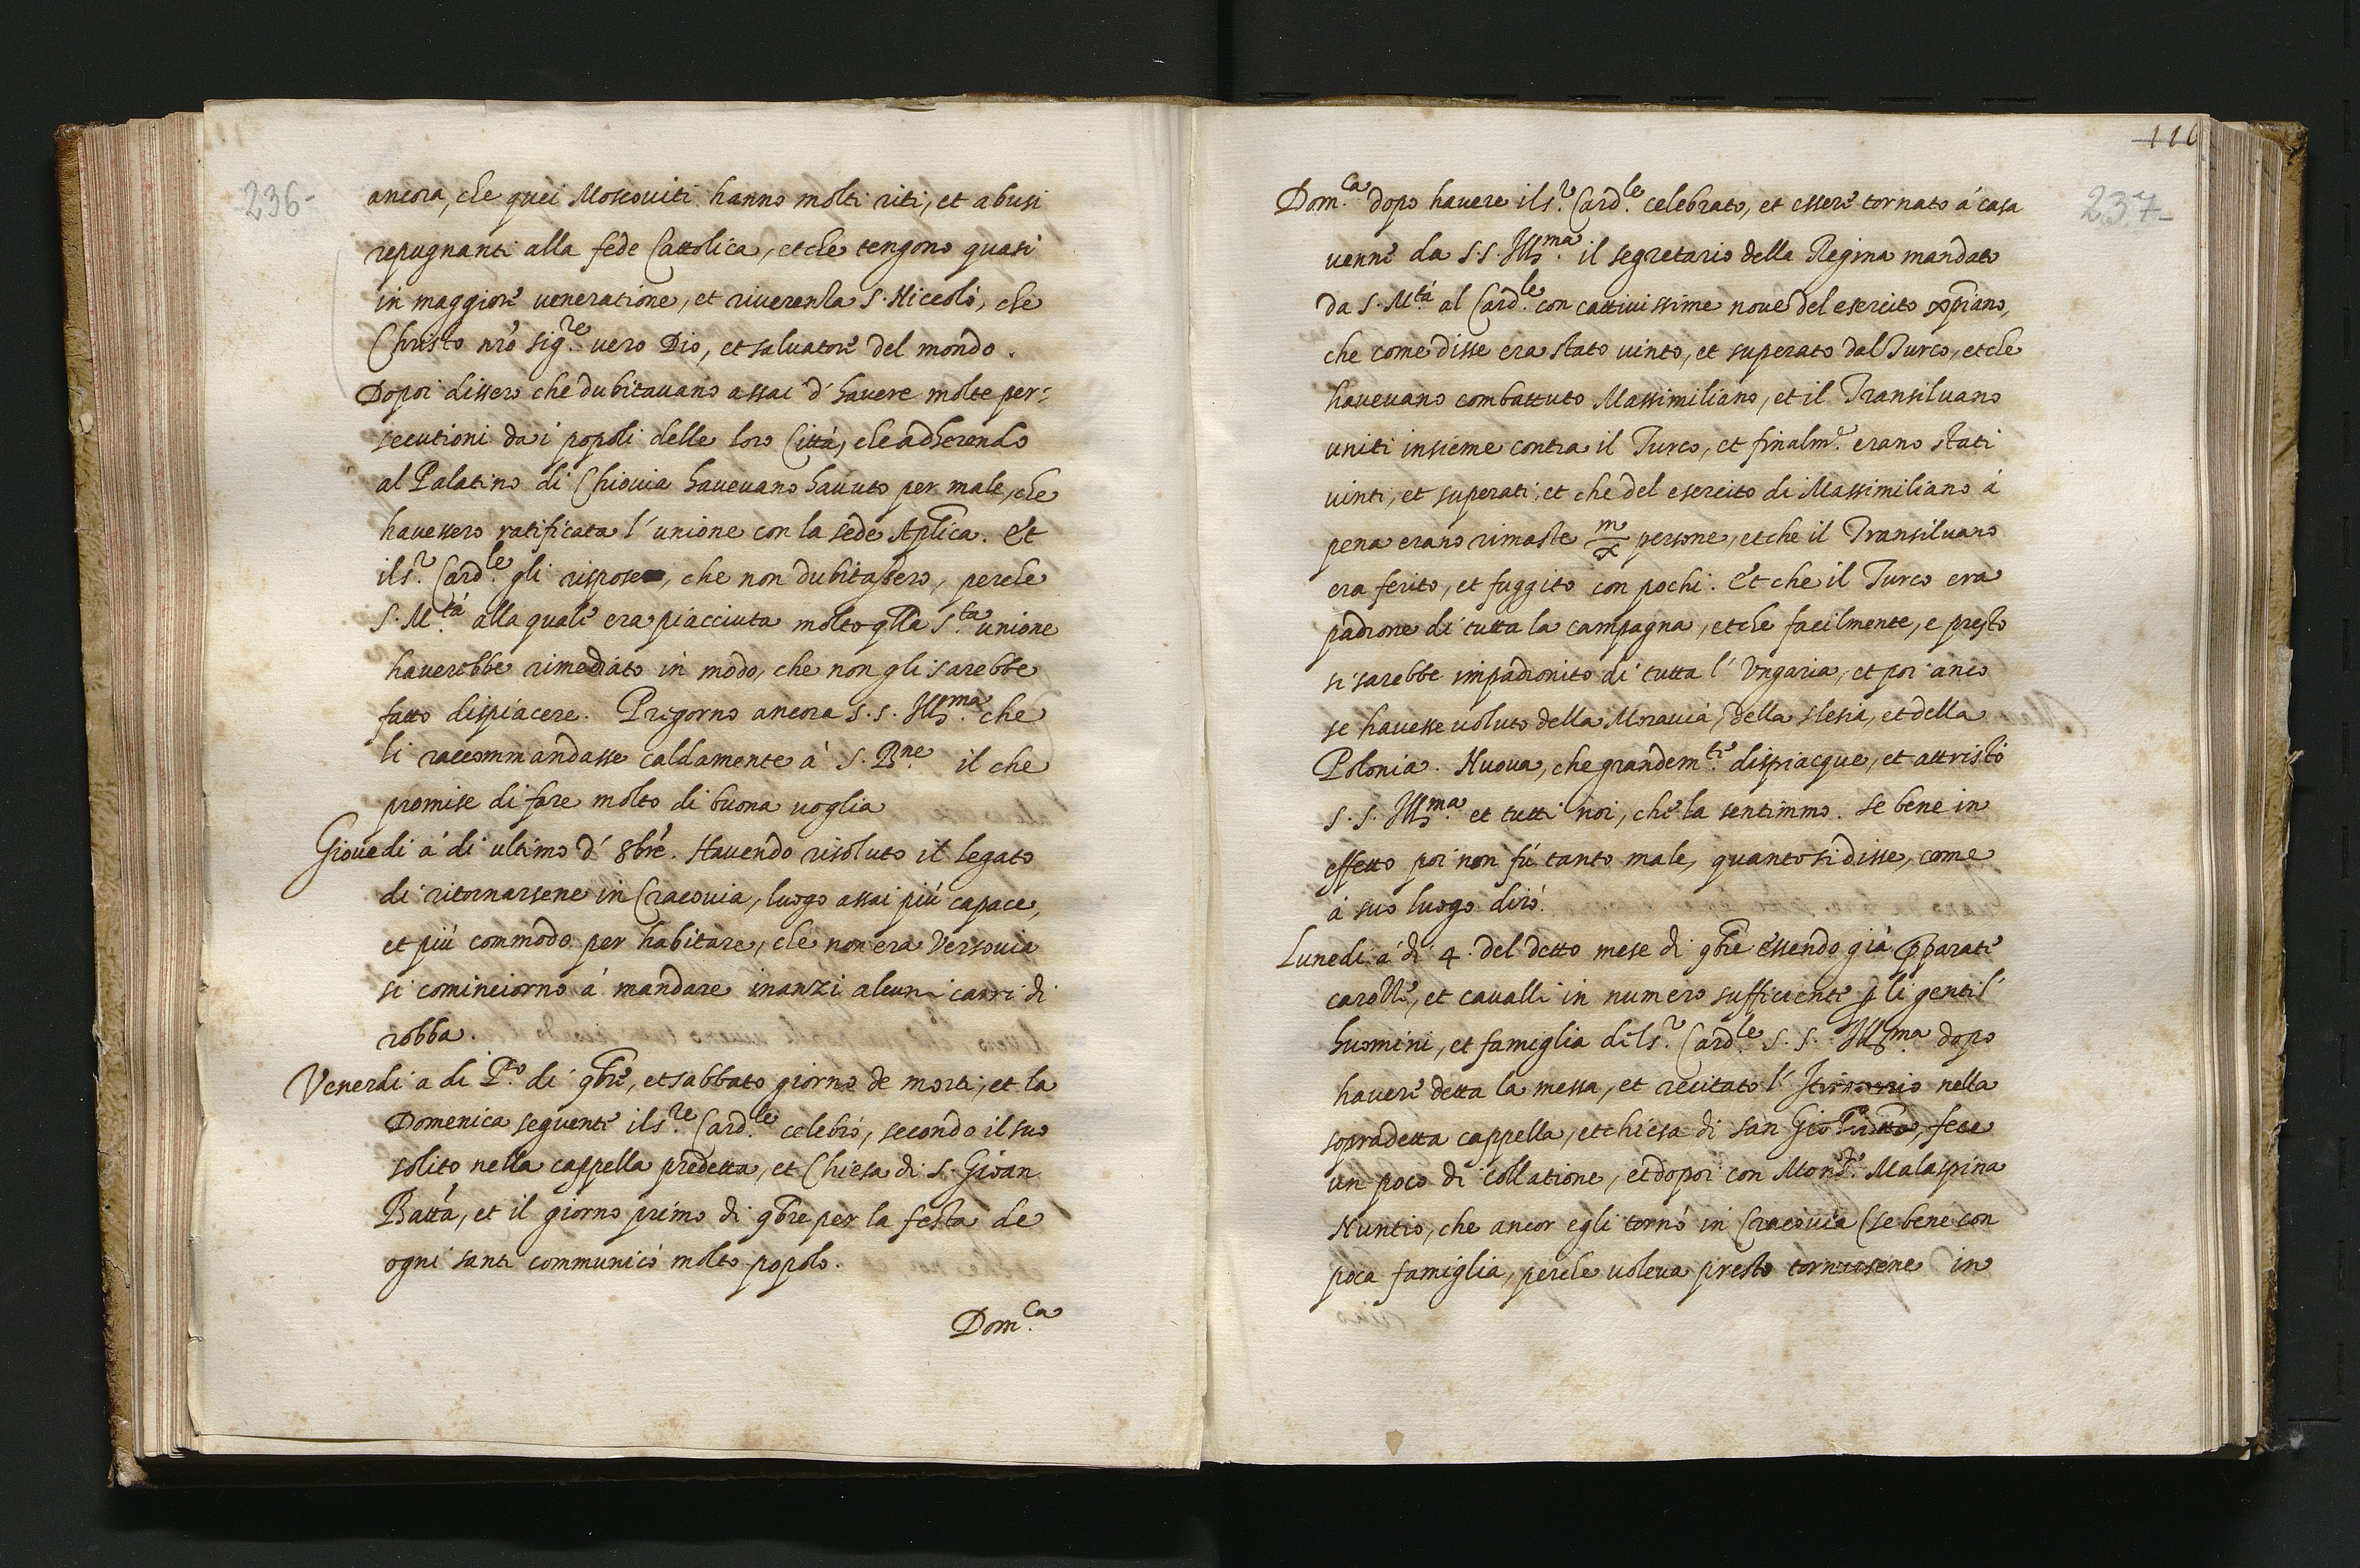 236-
ancora, che quei Moscoviti hanno molti riti, et abusi
repugnanti alla fede Cattolica, et che tengono quasi
in maggiore veneratione, et riverenza S. Niccolò, che
Christo nrõ sig.re vero Dio, et salvatore del mondo.
Dopoi dissero che dubitavano assai d'havere molte per=
secutioni da i popoli delle loro Città, che adherendo
al Palatino di Chiovia havevano havuto per male, che
havessero ratificata l'unione con la sede Aplica. Et
il s.r Card.le gli rispose, che non dubitassero, perche
S. M.tà alla quale era piacciuta molto qlla S.ta unione
haverebbe rimediato in modo, che non gli sarebbe
fatto dispiacere. Pregorno ancora S. S. Ill.ma che
li raccommandasse caldamente à S. B.ne il che
promise di fare molto di buona voglia
Giovedi à di ultimo d' 8bre. Havendo risoluto il legato
di ritornarsene in Cracovia, luogo assai più capace,
et più commodo per habitare, che non era Versovia
si cominciorno à mandare inanzi alcuni carri di
robba.
Venerdi a di P.o di 9bre, et sabbato giorno de morti, et la
Domenica seguente il s.re Card.le celebrò, secondo il suo
solito nella cappella predetta, et Chiesa di S. Gioan
Batta, et il giorno primo di 9bre per la festa de
ogni santi communicò molto popolo.
Dom.ca
110
237-
Dom.ca dopo havere il s.r Card.le celebrato, et essere tornato à casa
venne da S. S. Ill.ma il segretario della Regina mandato
da S. M.tà al Card.le con cattivissime nove del esercito xpiano,
che come disse era stato vinto, et superato dal Turco, et che
havevano combattuto Massimiliano, et il Transilvano
uniti insieme contra il Turco, et finalm.e erano stati
vinti, et superati, et che del esercito di Massimiliano à
pena erano rimaste m/x persone, et che il Transilvano
era ferito, et fuggito con pochi. Et che il Turco era
padrone di tutta la campagna, et che facilmente, e presto
si sarebbe impadronito di tutta l'Ungaria, et poi anco
se havesse voluto della Moravia, della slesia, et della
Polonia. Nuova, che grandem.te dispiacque, et attristò
S. S. Ill.ma et tutti noi, che la sentimmo. se bene in
effetto poi non fù tanto male, quanto si disse, come
à suo luogo dirò.
Lunedi à di 4. del detto mese di 9bre essendo già pparate
carozze, et cavalli in numero sufficiente p li gentil'
huomini, et famiglia del s.r Card.le S. S. Ill.ma dopo
havere detta la messa, et recitato l' Itinerario nella
sopradetta cappella, et chiesa di san Gio Batta, fece
un poco di collatione, et dopoi con Mons.r Malaspina
Nuntio, che ancor egli tornò in Cracovia (se bene con
poca famiglia, perche voleva presto tornarsene in